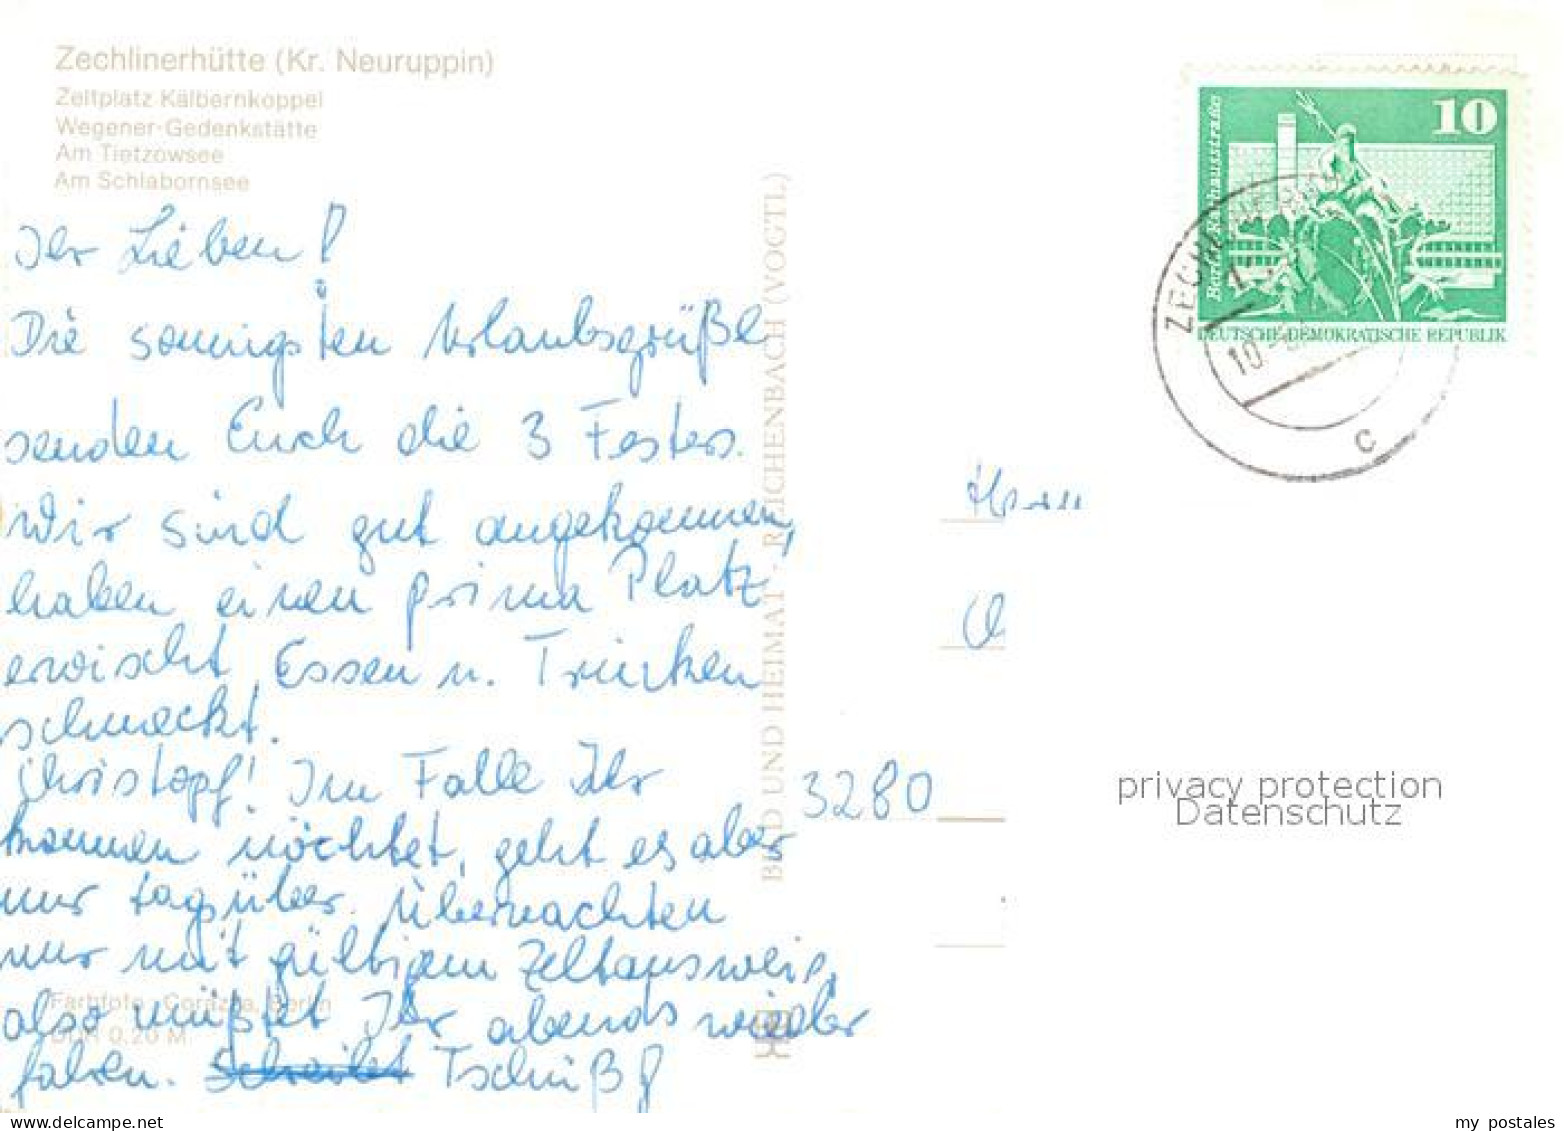 Zechlinerhütte (Kr. Neuruppin)
Zeltplatz Kälbernkoppel
Wegener-Gedenkstätte
Am Tietzowsee
Am Schlabornsee
Ihr Lieben!
Die sonnigsten Urlaubsgrüße
senden Euch die 3 Festers.
Wir sind gut angekommen,
haben einen prima Platz
erwischt, Essen u. Trinken
schmeckt.
Christopf! Im Falle Ihr
kommen möchtet, geht es aber
nur tagsüber. Übernachten
nur mit gültigem Zeltausweis,
also müßtet Ihr abends wieder
fahren. Schreibt Tschüß!
Farbfoto: Corazza, Berlin
DDR 0,20 M
BILD UND HEIMAT · REICHENBACH (VOGTL)
10
Rathausstraße
DEUTSCHE DEMOKRATISCHE REPUBLIK
10
C
Herrn
3280
privacy protection
Datenschutz
www.delcampe.net
my_postales